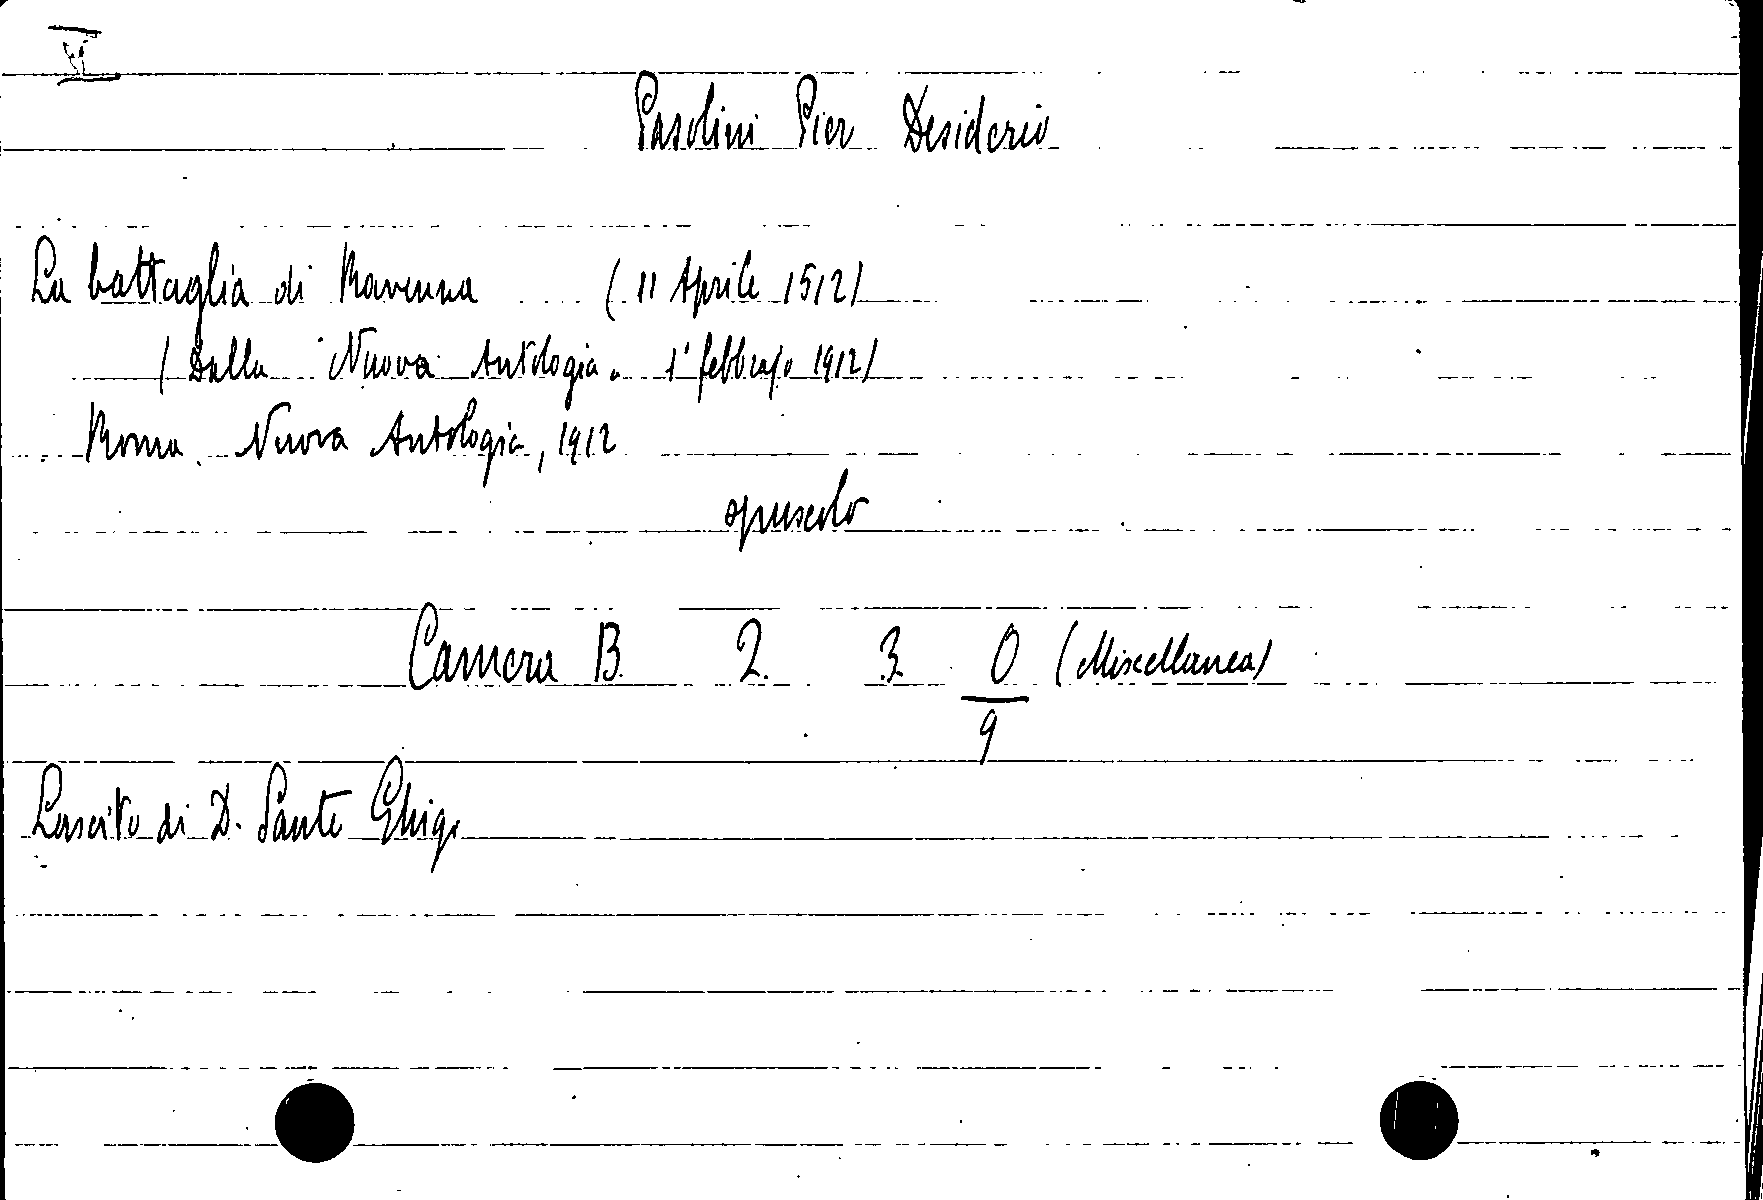 VI
Pasolini Pier Desiderio
La battaglia di Ravenna (11 Aprile 1512)
(Dalla "Nuova Antologia" 1° febbrajo 1912)
Roma. Nuova Antologia, 1912
opuscolo
Camera B. 2. 3. 0 (Miscellanea)
9
Lascito di D. Sante Ghigi